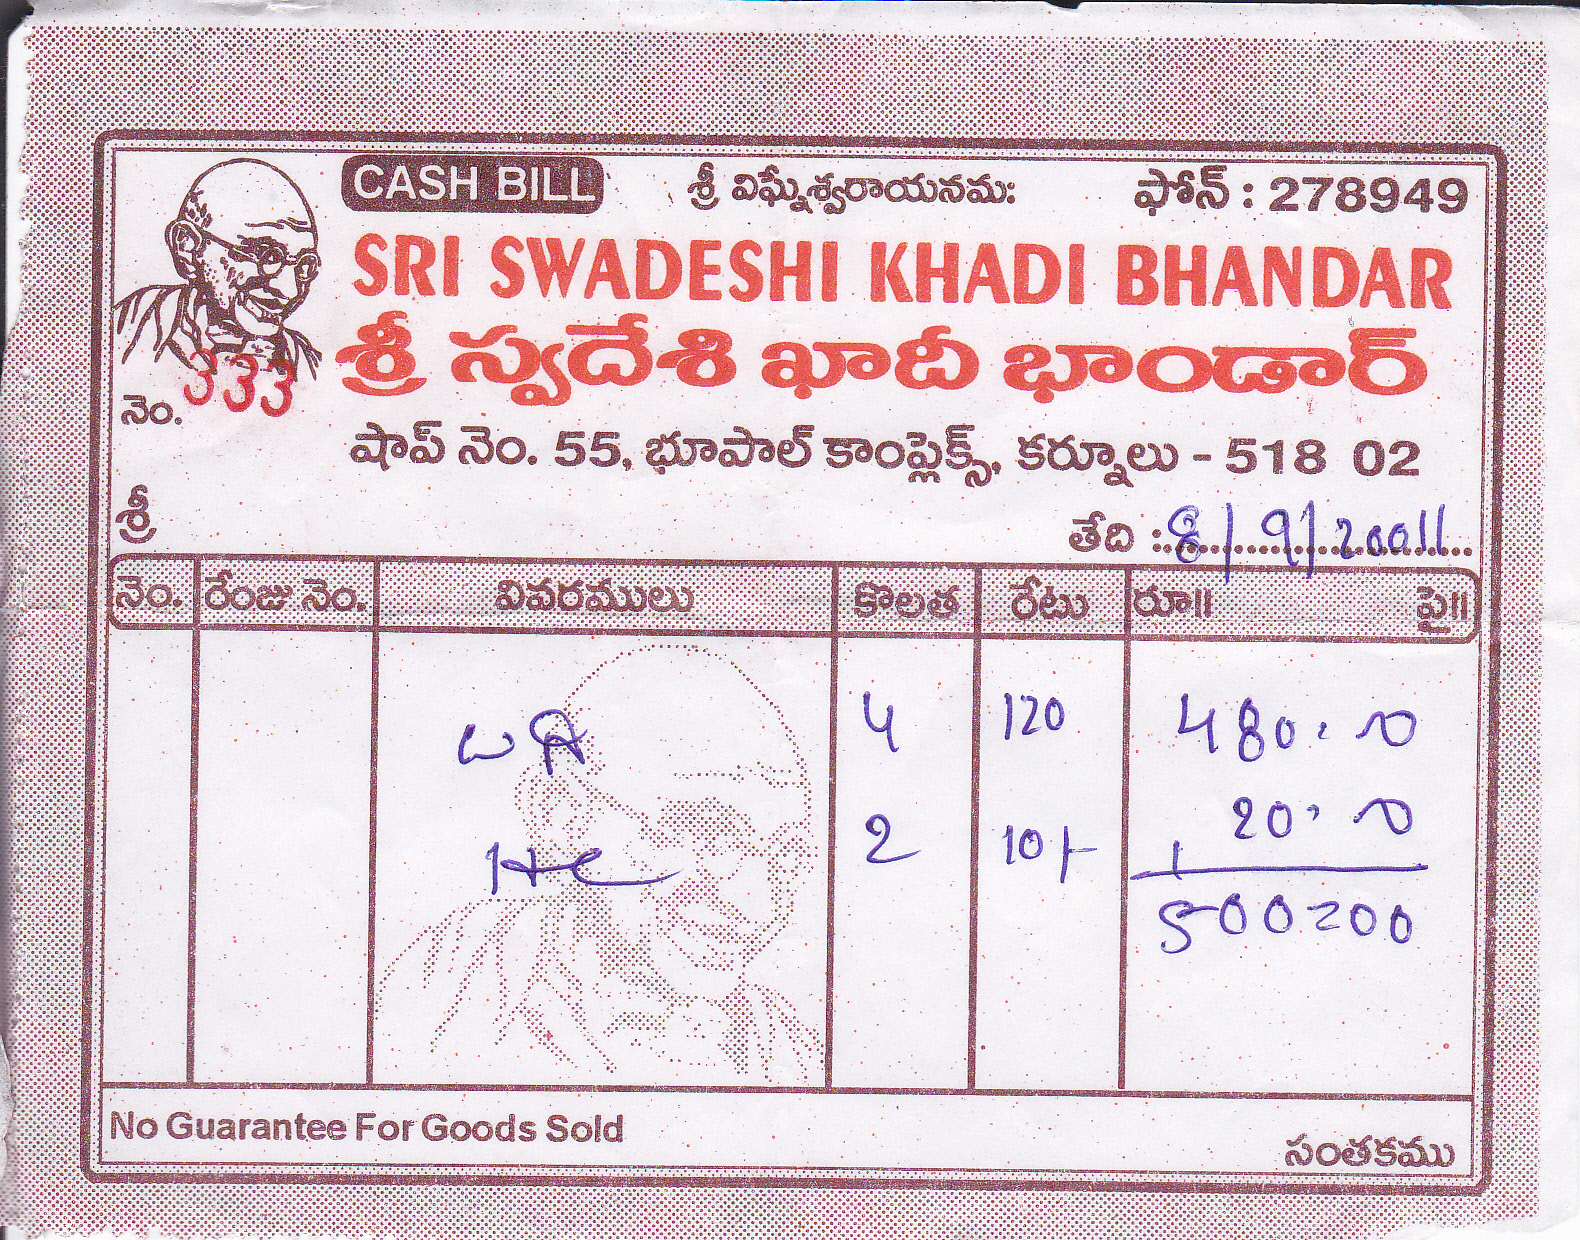 CASH BILL శ్రీ విఘ్నేశ్వరాయనమః ఫోన్ : 278949
SRI SWADESHI KHADI BHANDAR
శ్రీ స్వదేశి ఖాదీ భాండార్
నెం. 333
షాప్ నెం. 55, భూపాల్ కాంప్లెక్స్, కర్నూలు - 518 02
శ్రీ
తేది : 8/9/2011
నెం. రేంజు నెం. వివరములు కొలత రేటు రూ॥ పై॥
4 120 480.00
2 10/- 20.00
500=00
No Guarantee For Goods Sold
సంతకము